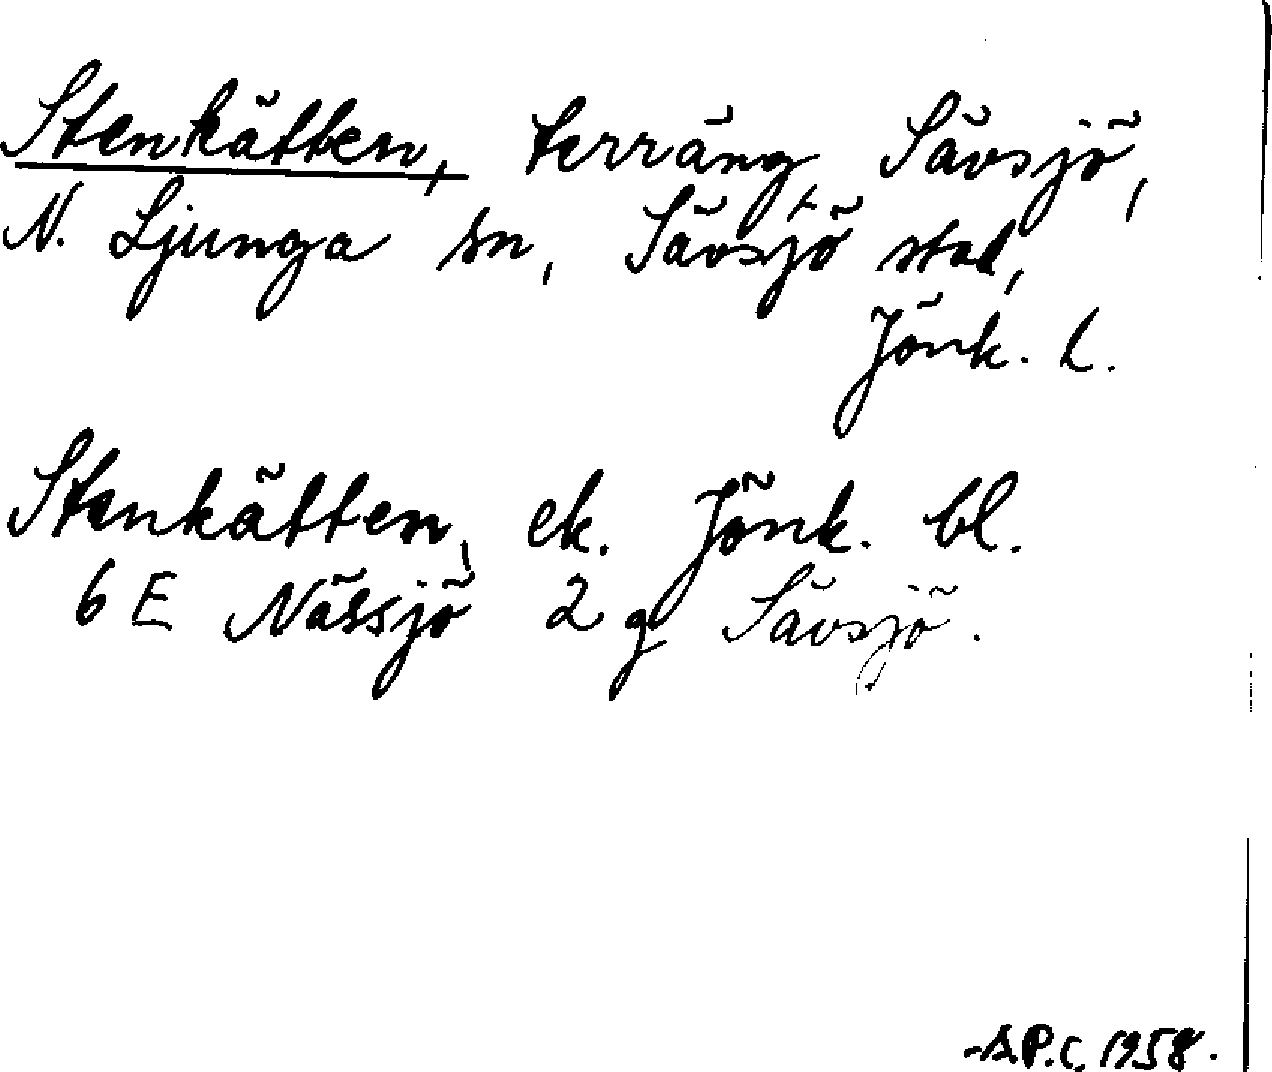 Stenkätten, terräng, Sävsjö,
N. Ljunga sn, Sävsjö stad,
Jönk. l.
Stenkätten, ek. Jönk. bl.
6 E Nässjö 2 g Sävsjö.
1958.